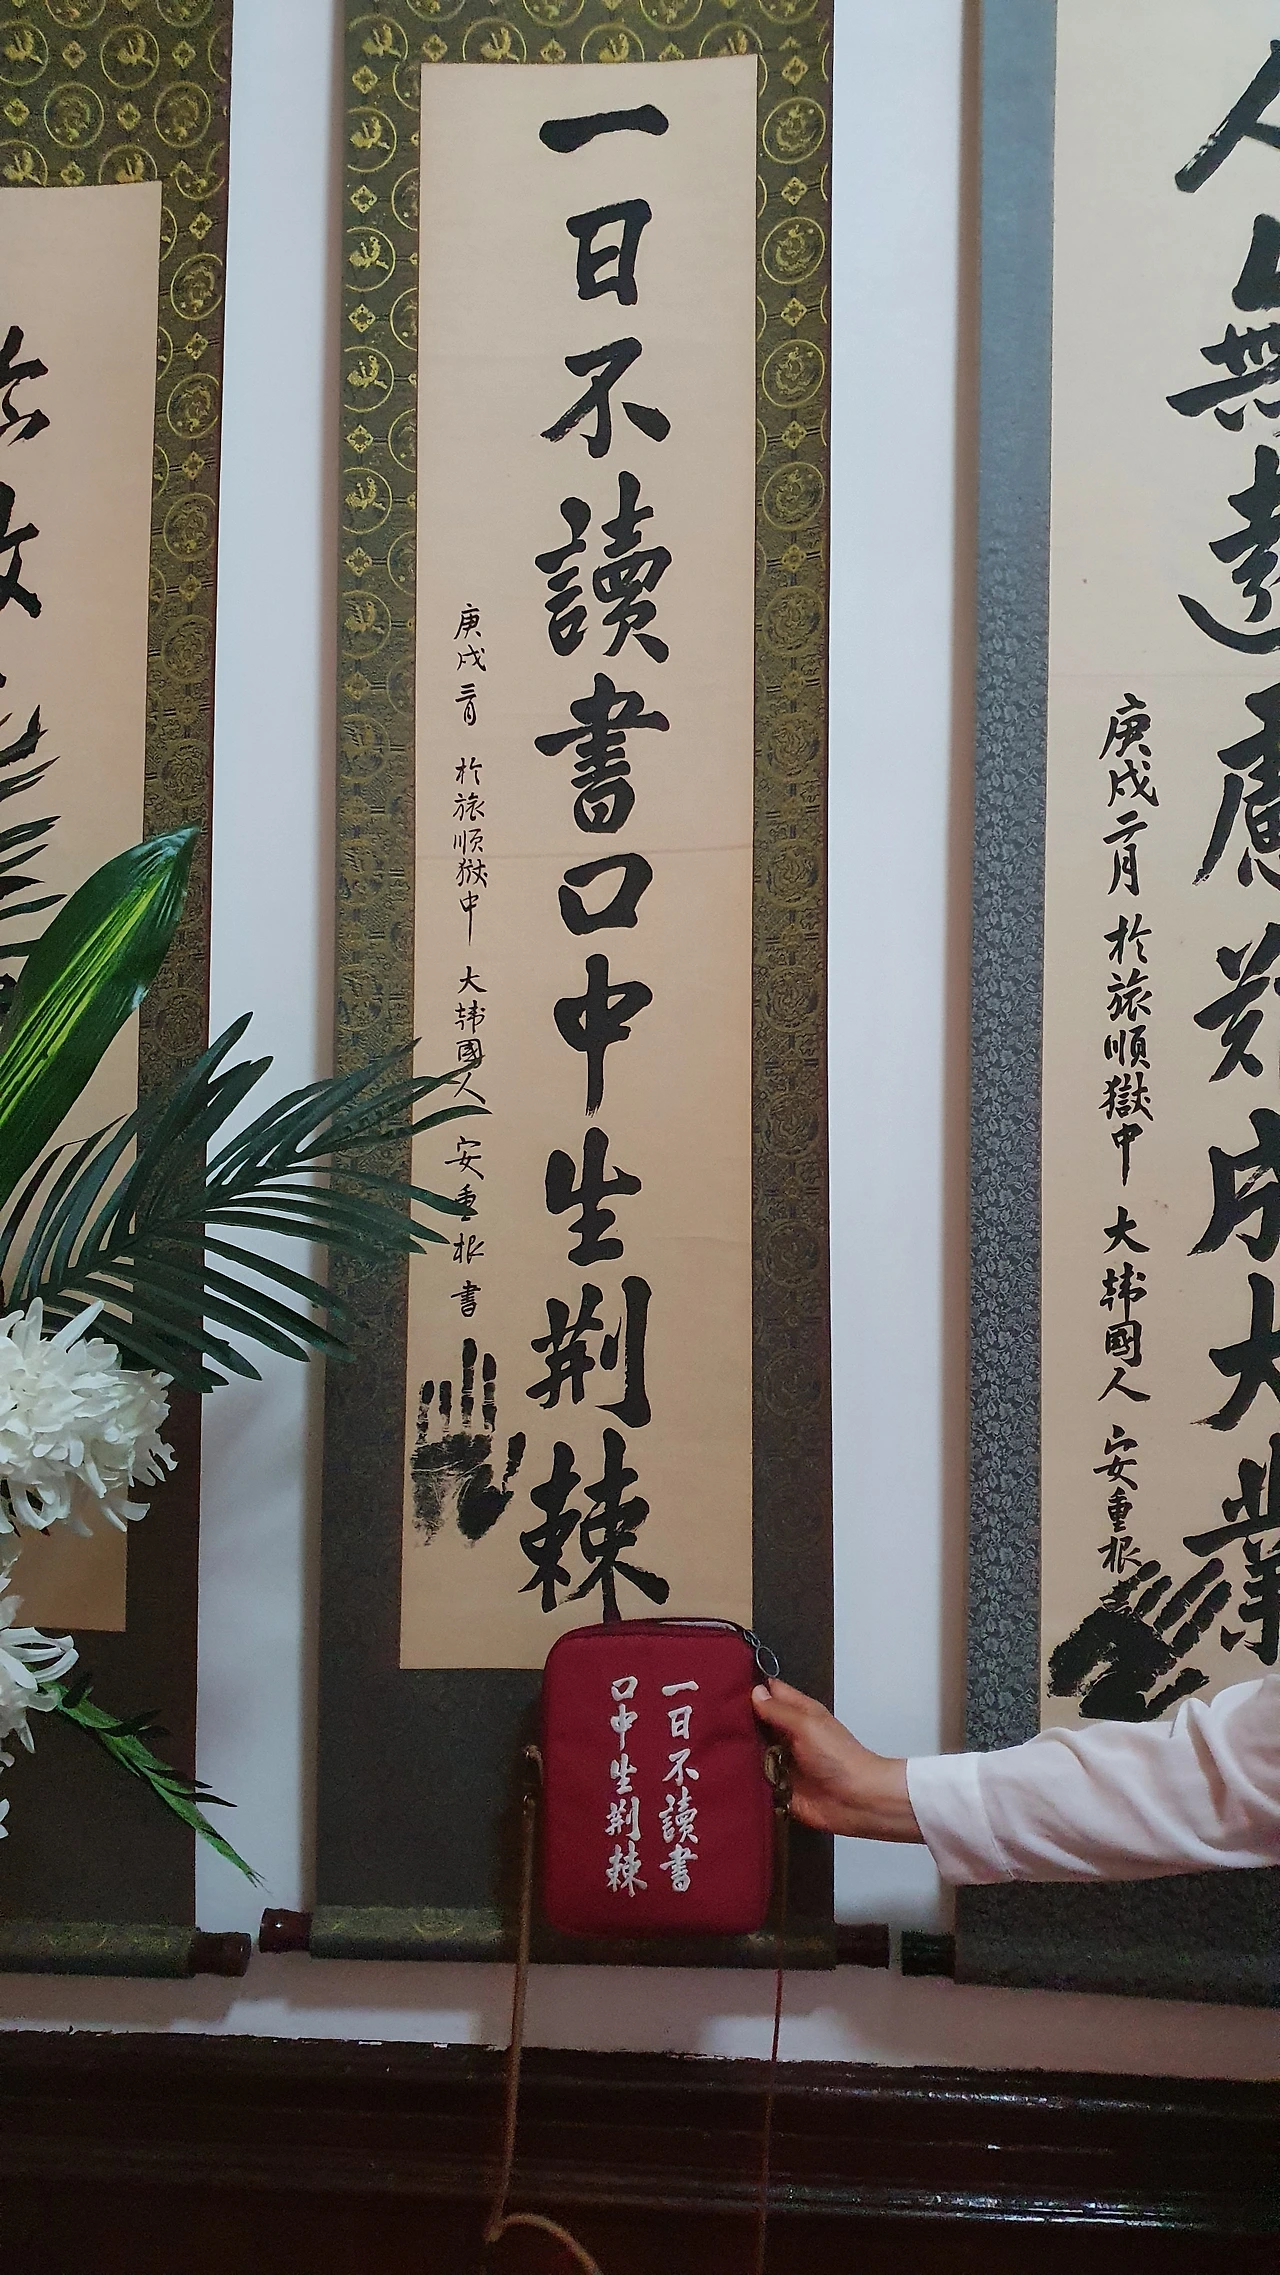 人無遠慮難成大業
庚戌二月 於旅順獄中 大韓國人 安重根
一日不讀書口中生荊棘
庚戌三月 於旅順獄中 大韓國人 安重根 書
一日不讀書
口中生荊棘